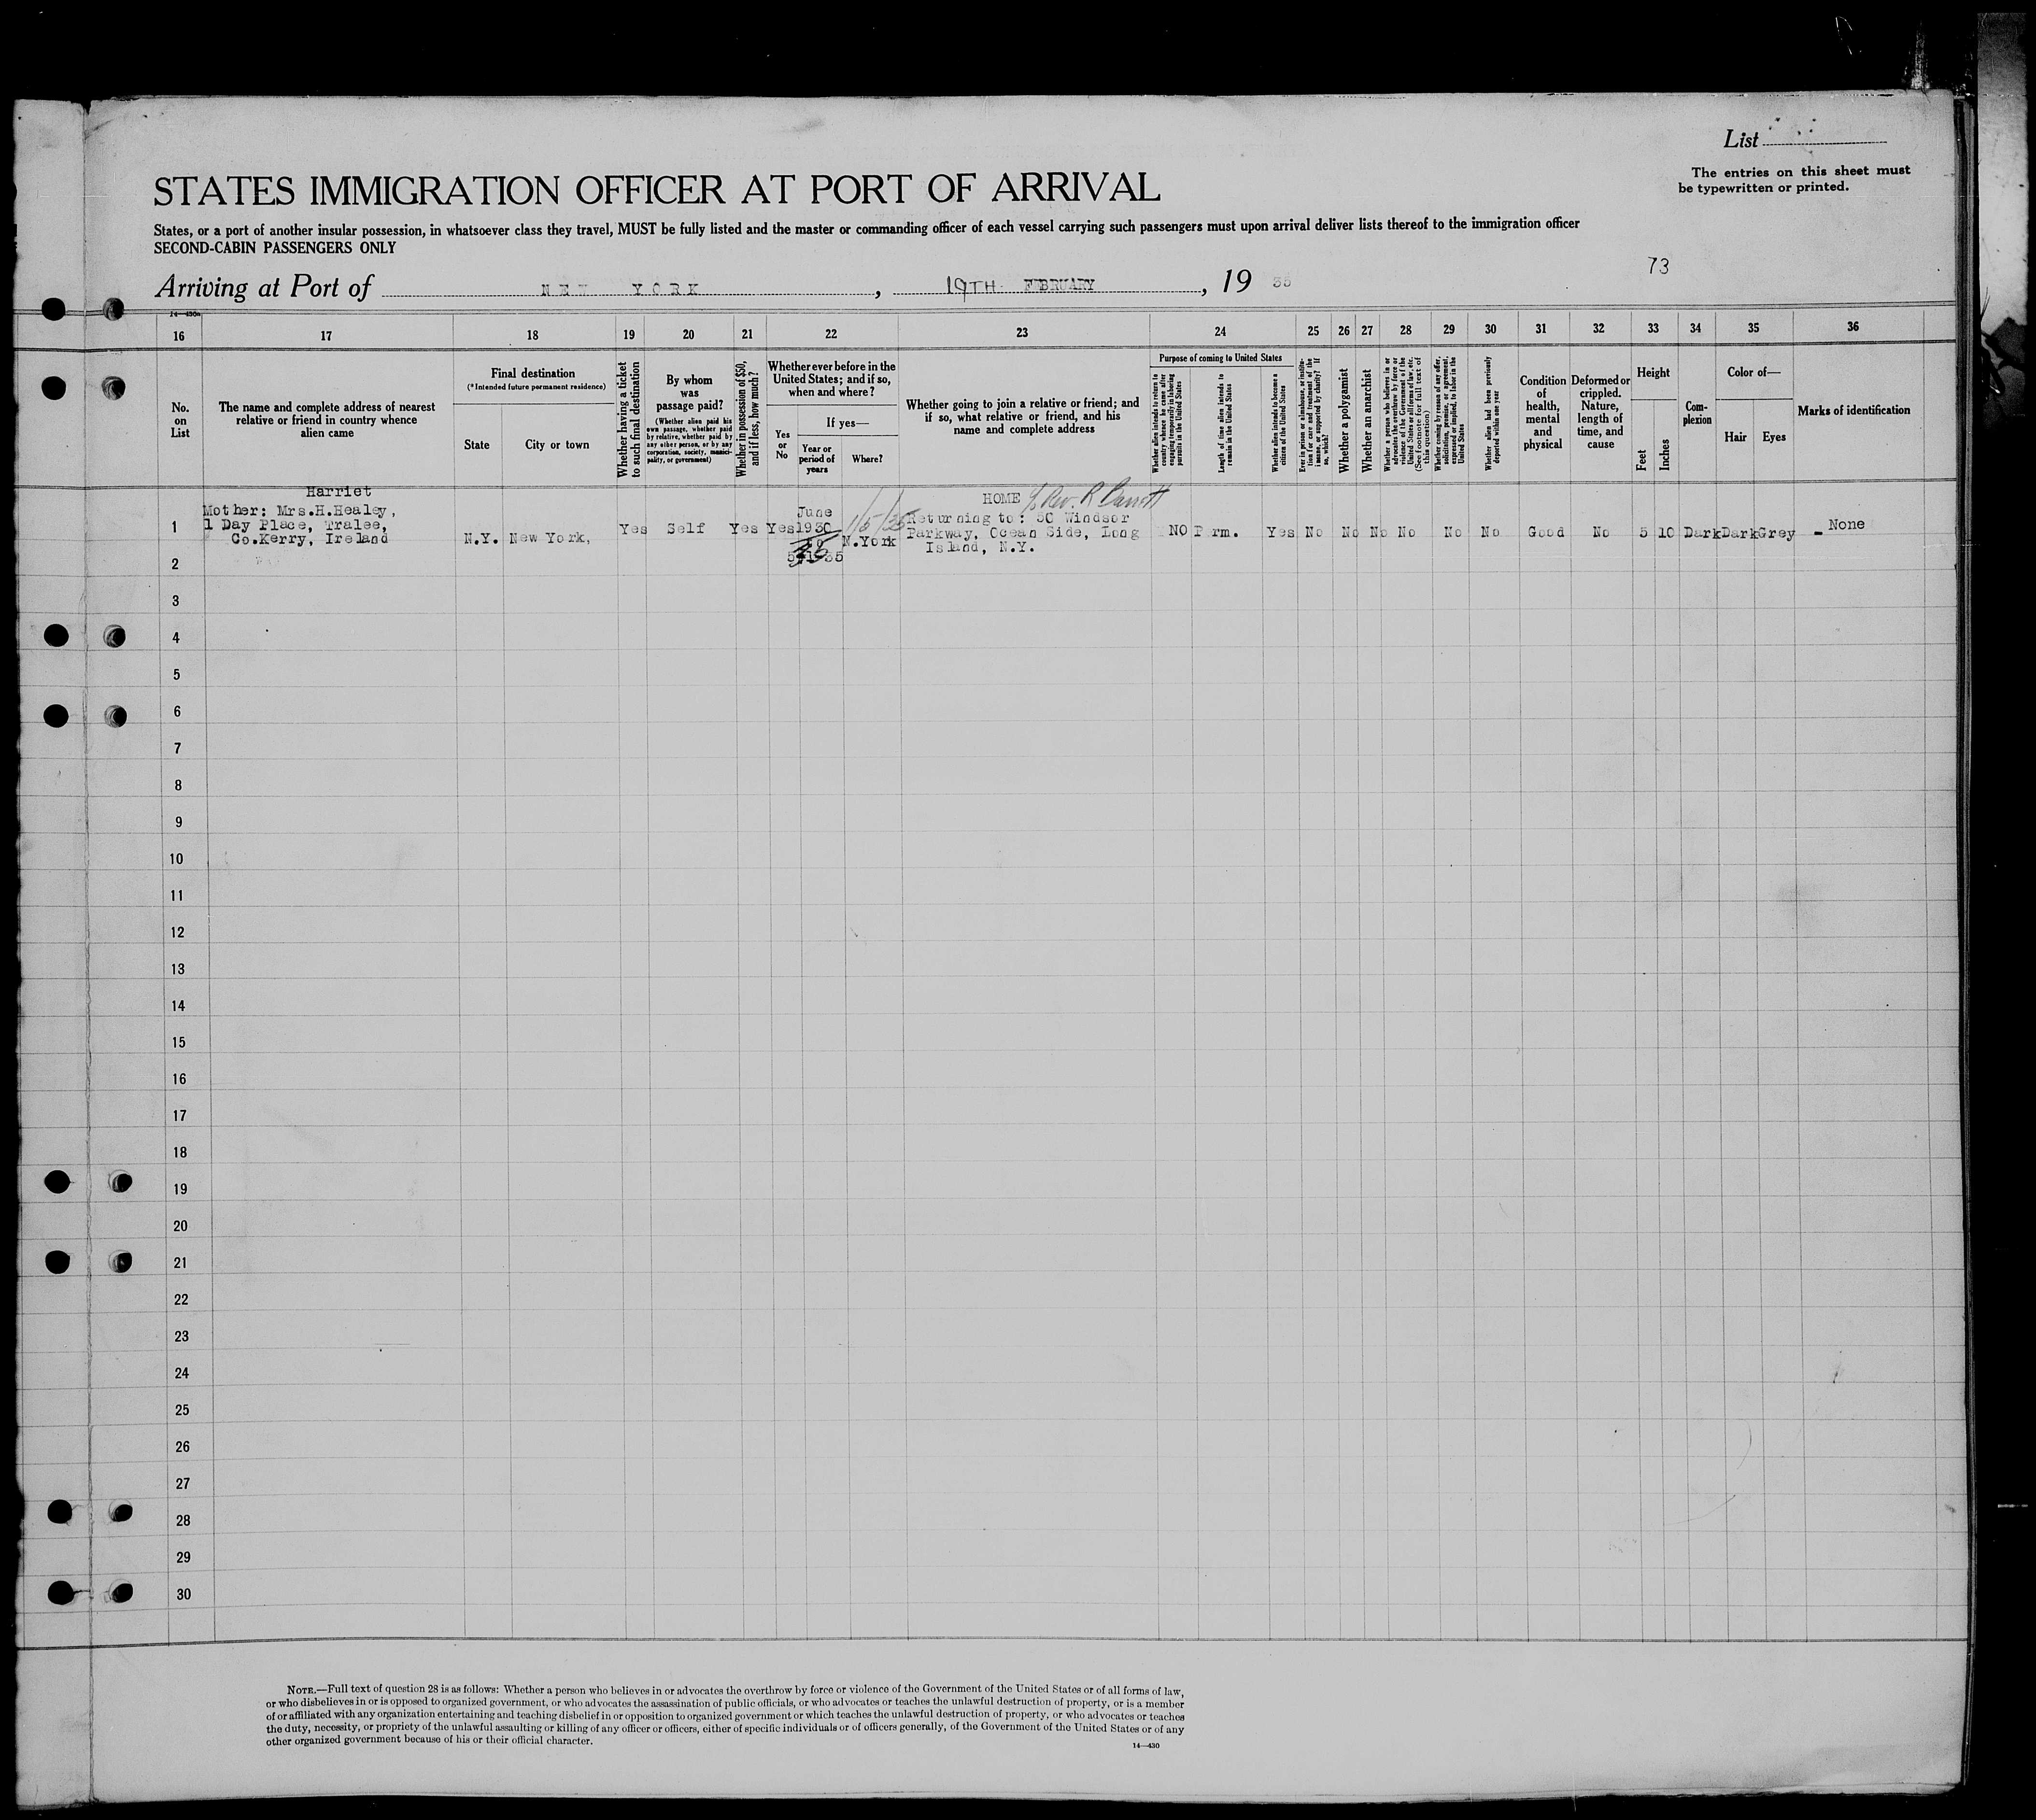 List
The entries on this sheet must
be typewritten or printed.
STATES IMMIGRATION OFFICER AT PORT OF ARRIVAL
States, or a port of another insular possession, in whatsoever class they travel, MUST be fully listed and the master or commanding officer of each vessel carrying such passengers must upon arrival deliver lists thereof to the immigration officer
SECOND-CABIN PASSENGERS ONLY
73
Arriving at Port of NEW YORK, 19TH FEBRUARY, 19
14—430
16 17 18 19 20 21 22 23 24 25 26 27 28 29 30 31 32 33 34 35 36
No.
on
List
The name and complete address of nearest
relative or friend in country whence
alien came
Final destination
(*Intended future permanent residence)
State
City or town
Whether having a ticket
to such final destination
By whom
was
passage paid?
(Whether alien paid his
own passage, whether paid
by relative, whether paid by
any other person, or by any
corporation, society, munici-
pality, or government)
Whether in possession of $50,
and if less, how much?
Whether ever before in the
United States; and if so,
when and where?
If yes—
Yes
or
No
Year or
period of
years
Where?
Whether going to join a relative or friend; and
if so, what relative or friend, and his
name and complete address
Purpose of coming to United States
Whether alien intends to return to
country whence he came after
engaging temporarily in laboring
pursuits in the United States
Length of time alien intends to
remain in the United States
Whether alien intends to become a
citizen of the United States
Ever in prison or almshouse, or institu-
tion for care and treatment of the
insane, or supported by charity? If
so, which?
Whether a polygamist
Whether an anarchist
Whether a person who believes in or
advocates the overthrow by force or
violence of the Government of the
United States or all forms of law, etc.
(See footnote for full text of
this question)
Whether coming by reason of any offer,
solicitation, promise, or agreement,
expressed or implied, to labor in the
United States
Whether alien had been previously
deported within one year
Condition
of
health,
mental
and
physical
Deformed or
crippled.
Nature,
length of
time, and
cause
Height
Feet
Inches
Com-
plexion
Color of—
Hair
Eyes
Marks of identification
1
Harriet
Mother: Mrs.H.Healey,
1 Day Place, Tralee,
Co.Kerry, Ireland
N.Y.
New York,
Yes
Self
Yes
Yes
June
1930
35
1/5/35
N.York
HOME
Returning to: 50 Windsor
Parkway, Ocean Side, Long
Island, N.Y.
NO
Perm.
Yes
No
No
No
No
No
No
Good
No
5
10
Dark
Dark
Grey
None
2
3
4
5
6
7
8
9
10
11
12
13
14
15
16
17
18
19
20
21
22
23
24
25
26
27
28
29
30
NOTE.—Full text of question 28 is as follows: Whether a person who believes in or advocates the overthrow by force or violence of the Government of the United States or of all forms of law,
or who disbelieves in or is opposed to organized government, or who advocates the assassination of public officials, or who advocates or teaches the unlawful destruction of property, or is a member
of or affiliated with any organization entertaining and teaching disbelief in or opposition to organized government or which teaches the unlawful destruction of property, or who advocates or teaches
the duty, necessity, or propriety of the unlawful assaulting or killing of any officer or officers, either of specific individuals or of officers generally, of the Government of the United States or of any
other organized government because of his or their official character.
14—430